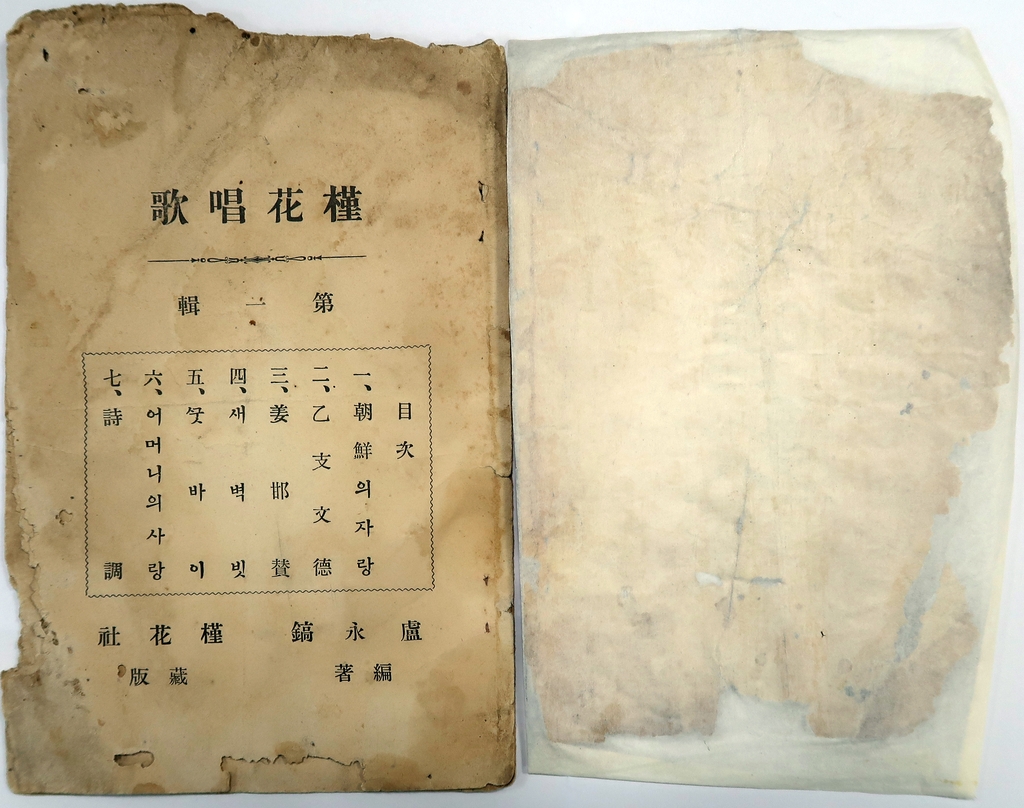 槿花唱歌
第一輯
目次
一、朝鮮의자랑
二、乙支文德
三、姜邯賛
四、새벽빗
五、싯바이
六、어머니의사랑
七、詩調
盧永鎬 編著
槿花社 藏版